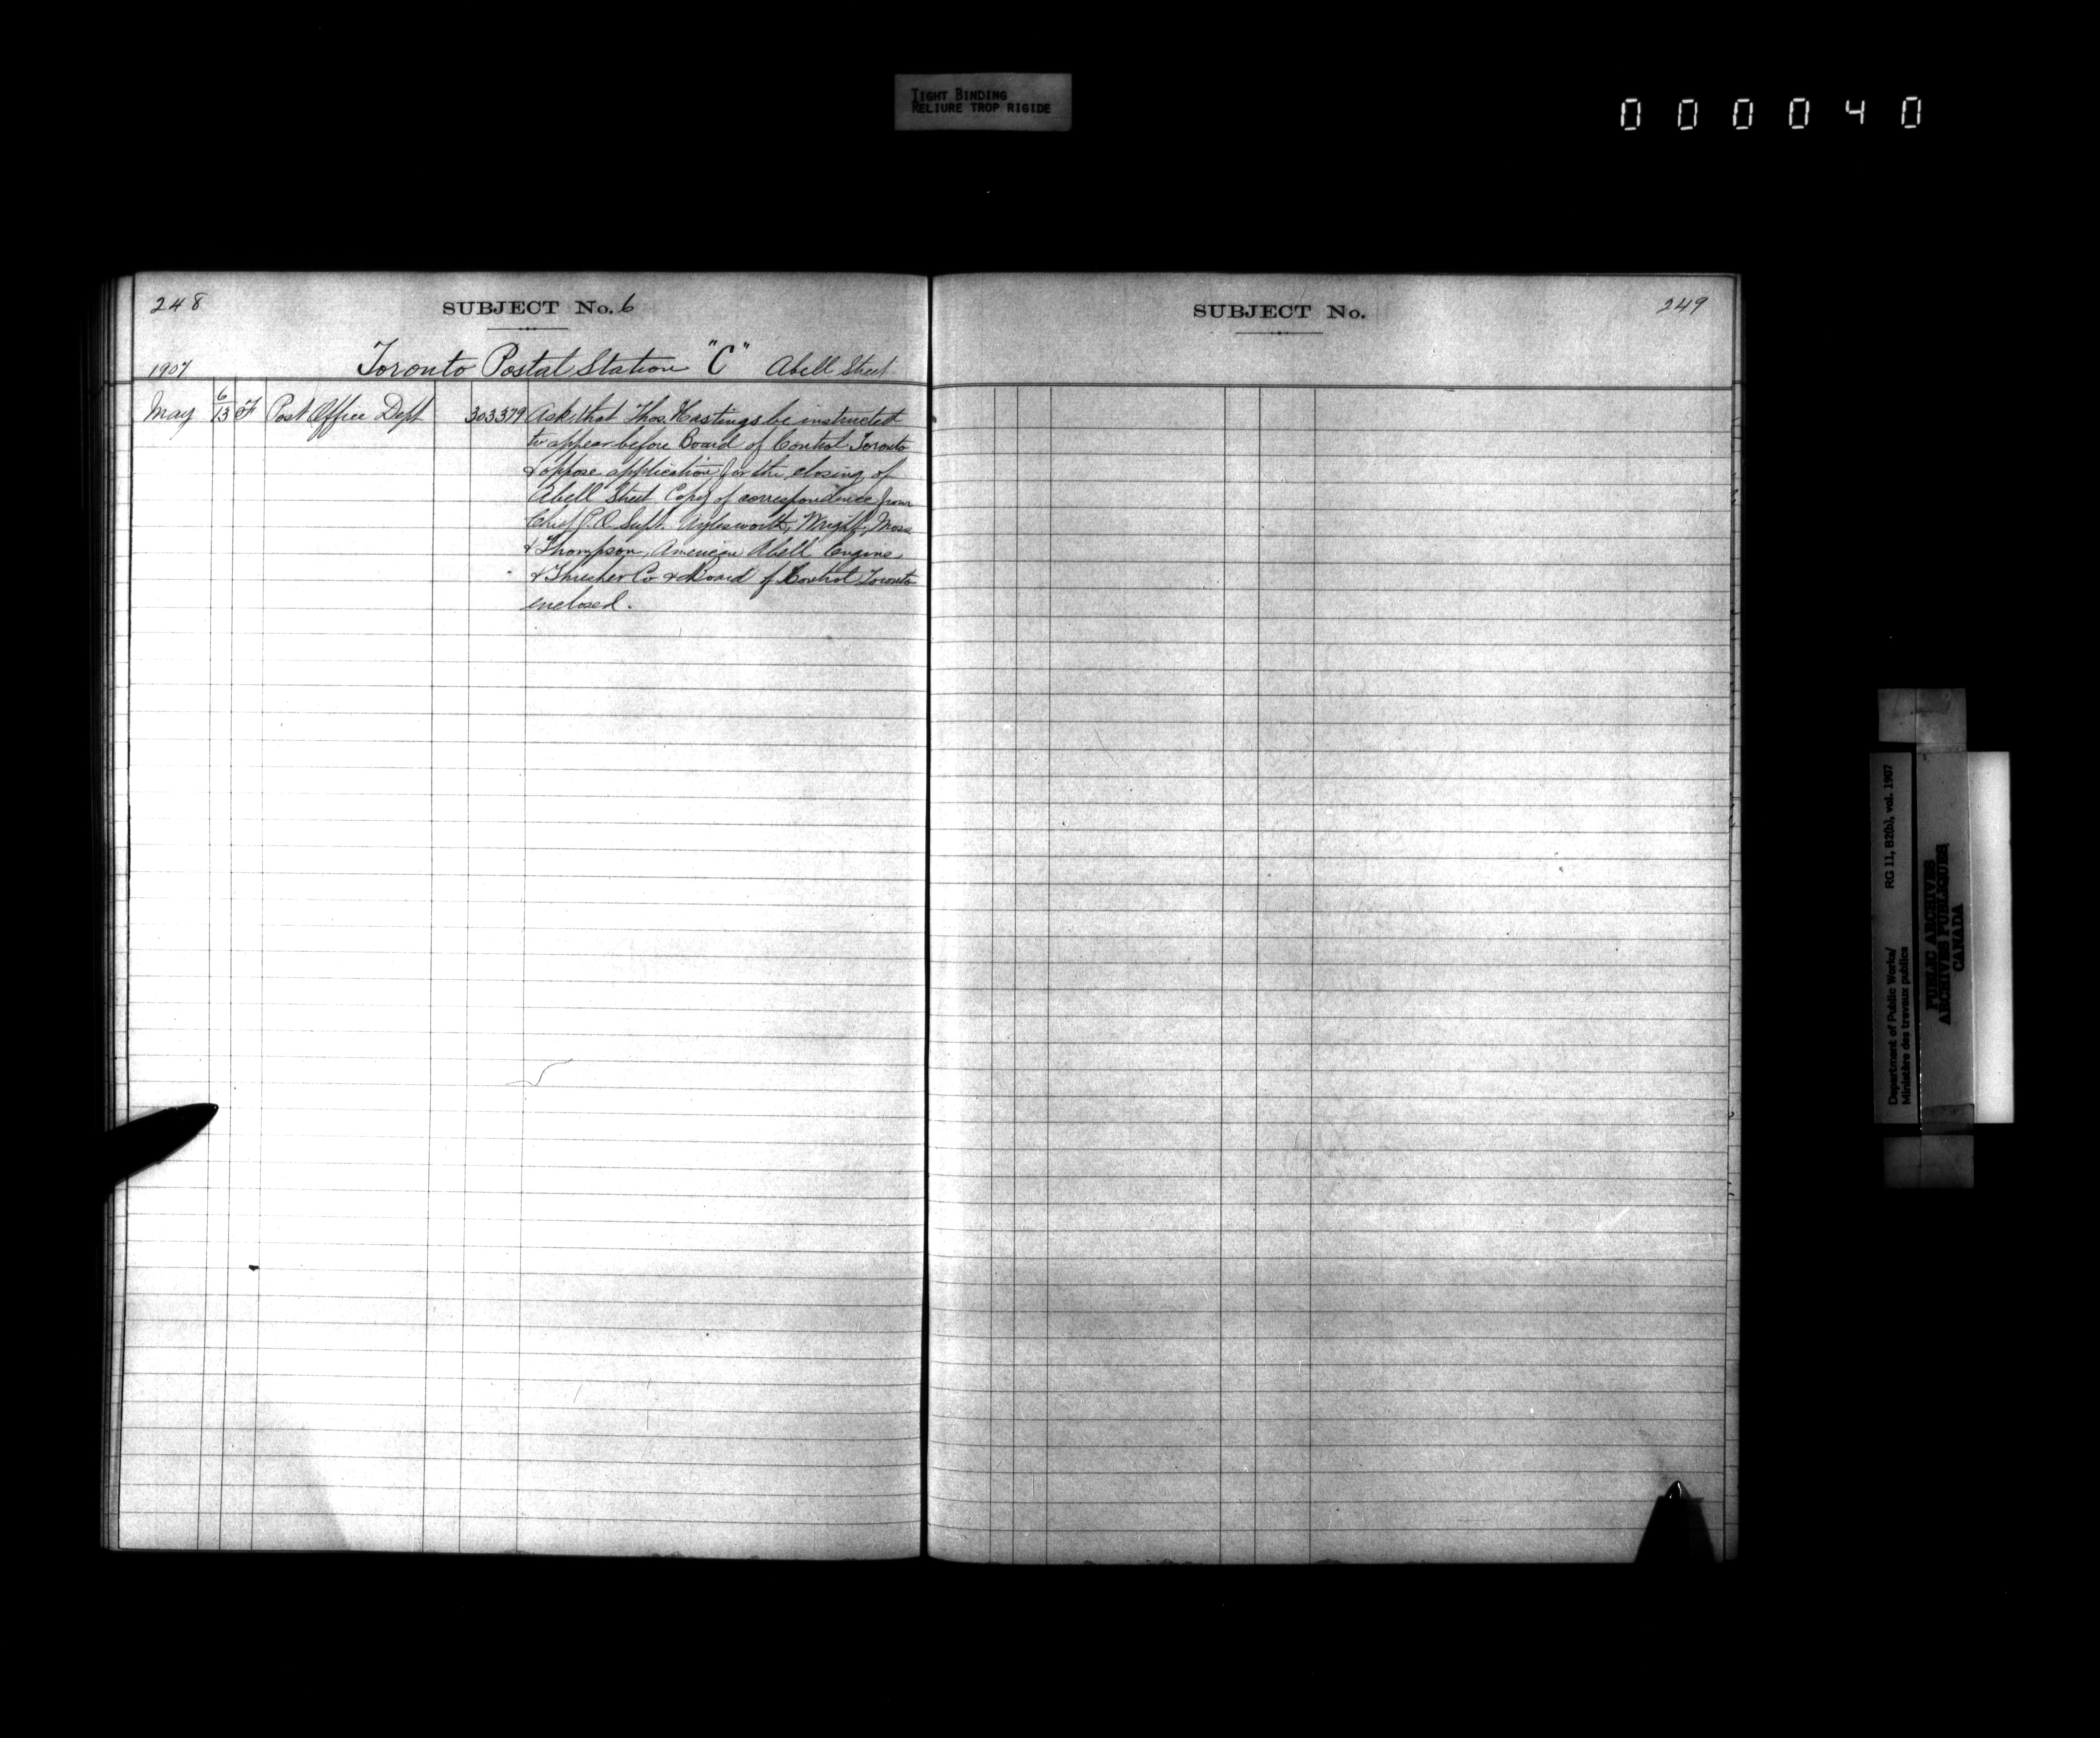 TIGHT BINDING
RELIURE TROP RIGIDE
000040
248
SUBJECT No. 6
1907
Toronto Postal Station "C" Abell Street
May 6/13 F Post Office Dept 303379 Ask that Thos. Hastings be instructed
to appear before Board of Control Toronto
& oppose application for the closing of
Abell Street Copy of correspondence from
Chief P.O. Supt. Aylesworth, Wright, Moss
& Thompson, American Abell Engine
& Thresher Co & Board of Control Toronto
enclosed.
SUBJECT No.
249
Department of Public Works/ RG 11, B2(b), vol. 1907
Ministère des travaux publics
PUBLIC ARCHIVES
ARCHIVES PUBLIQUES
CANADA